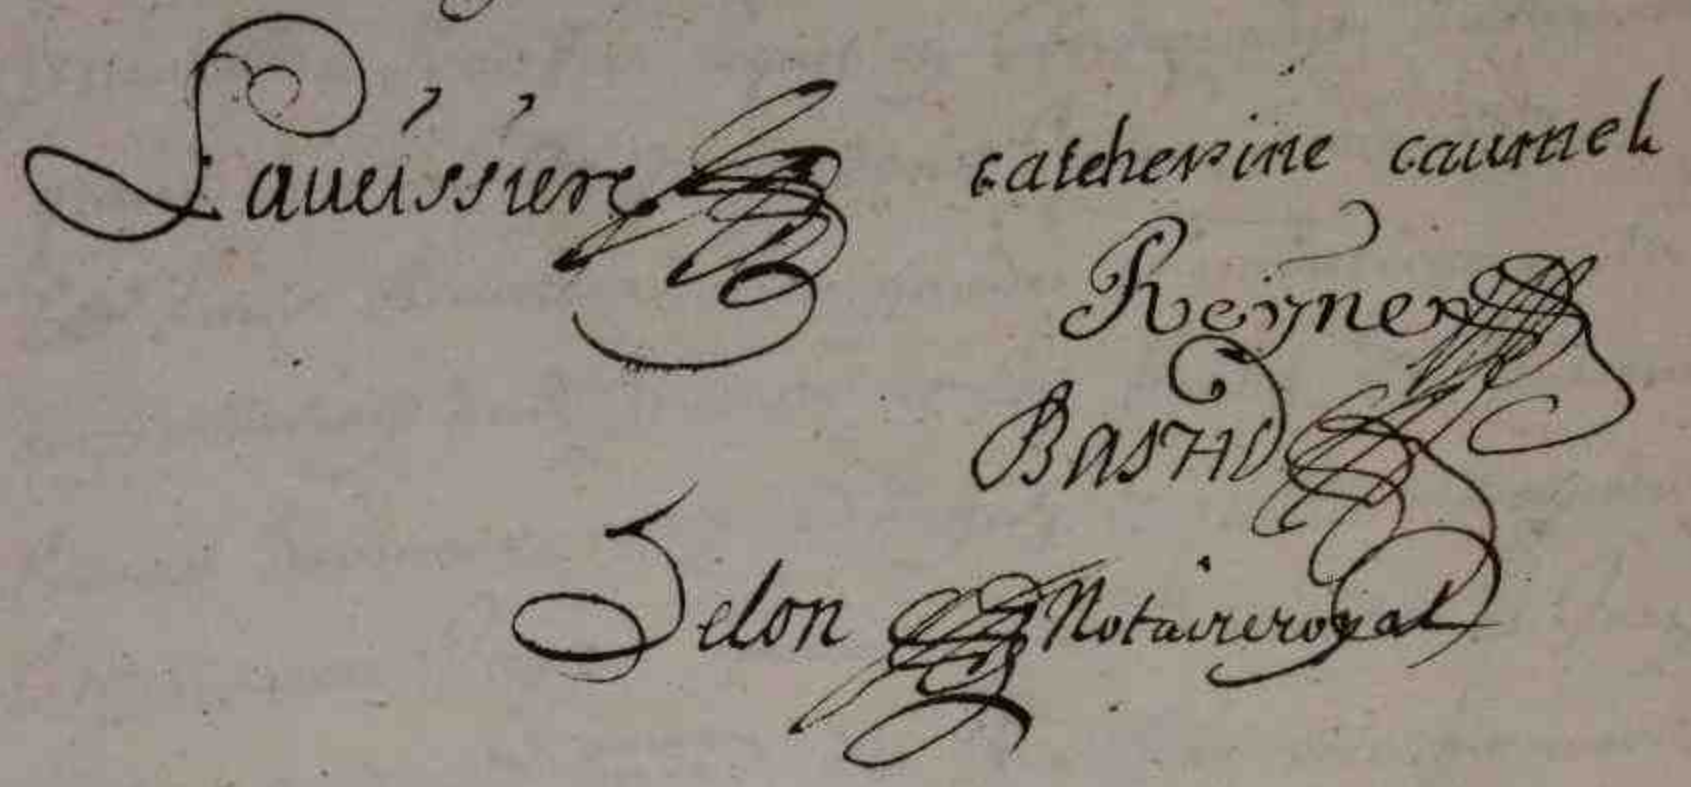 Laueissiere catcherine caurnel
Reÿner
BASTID
Selon Notaire royal